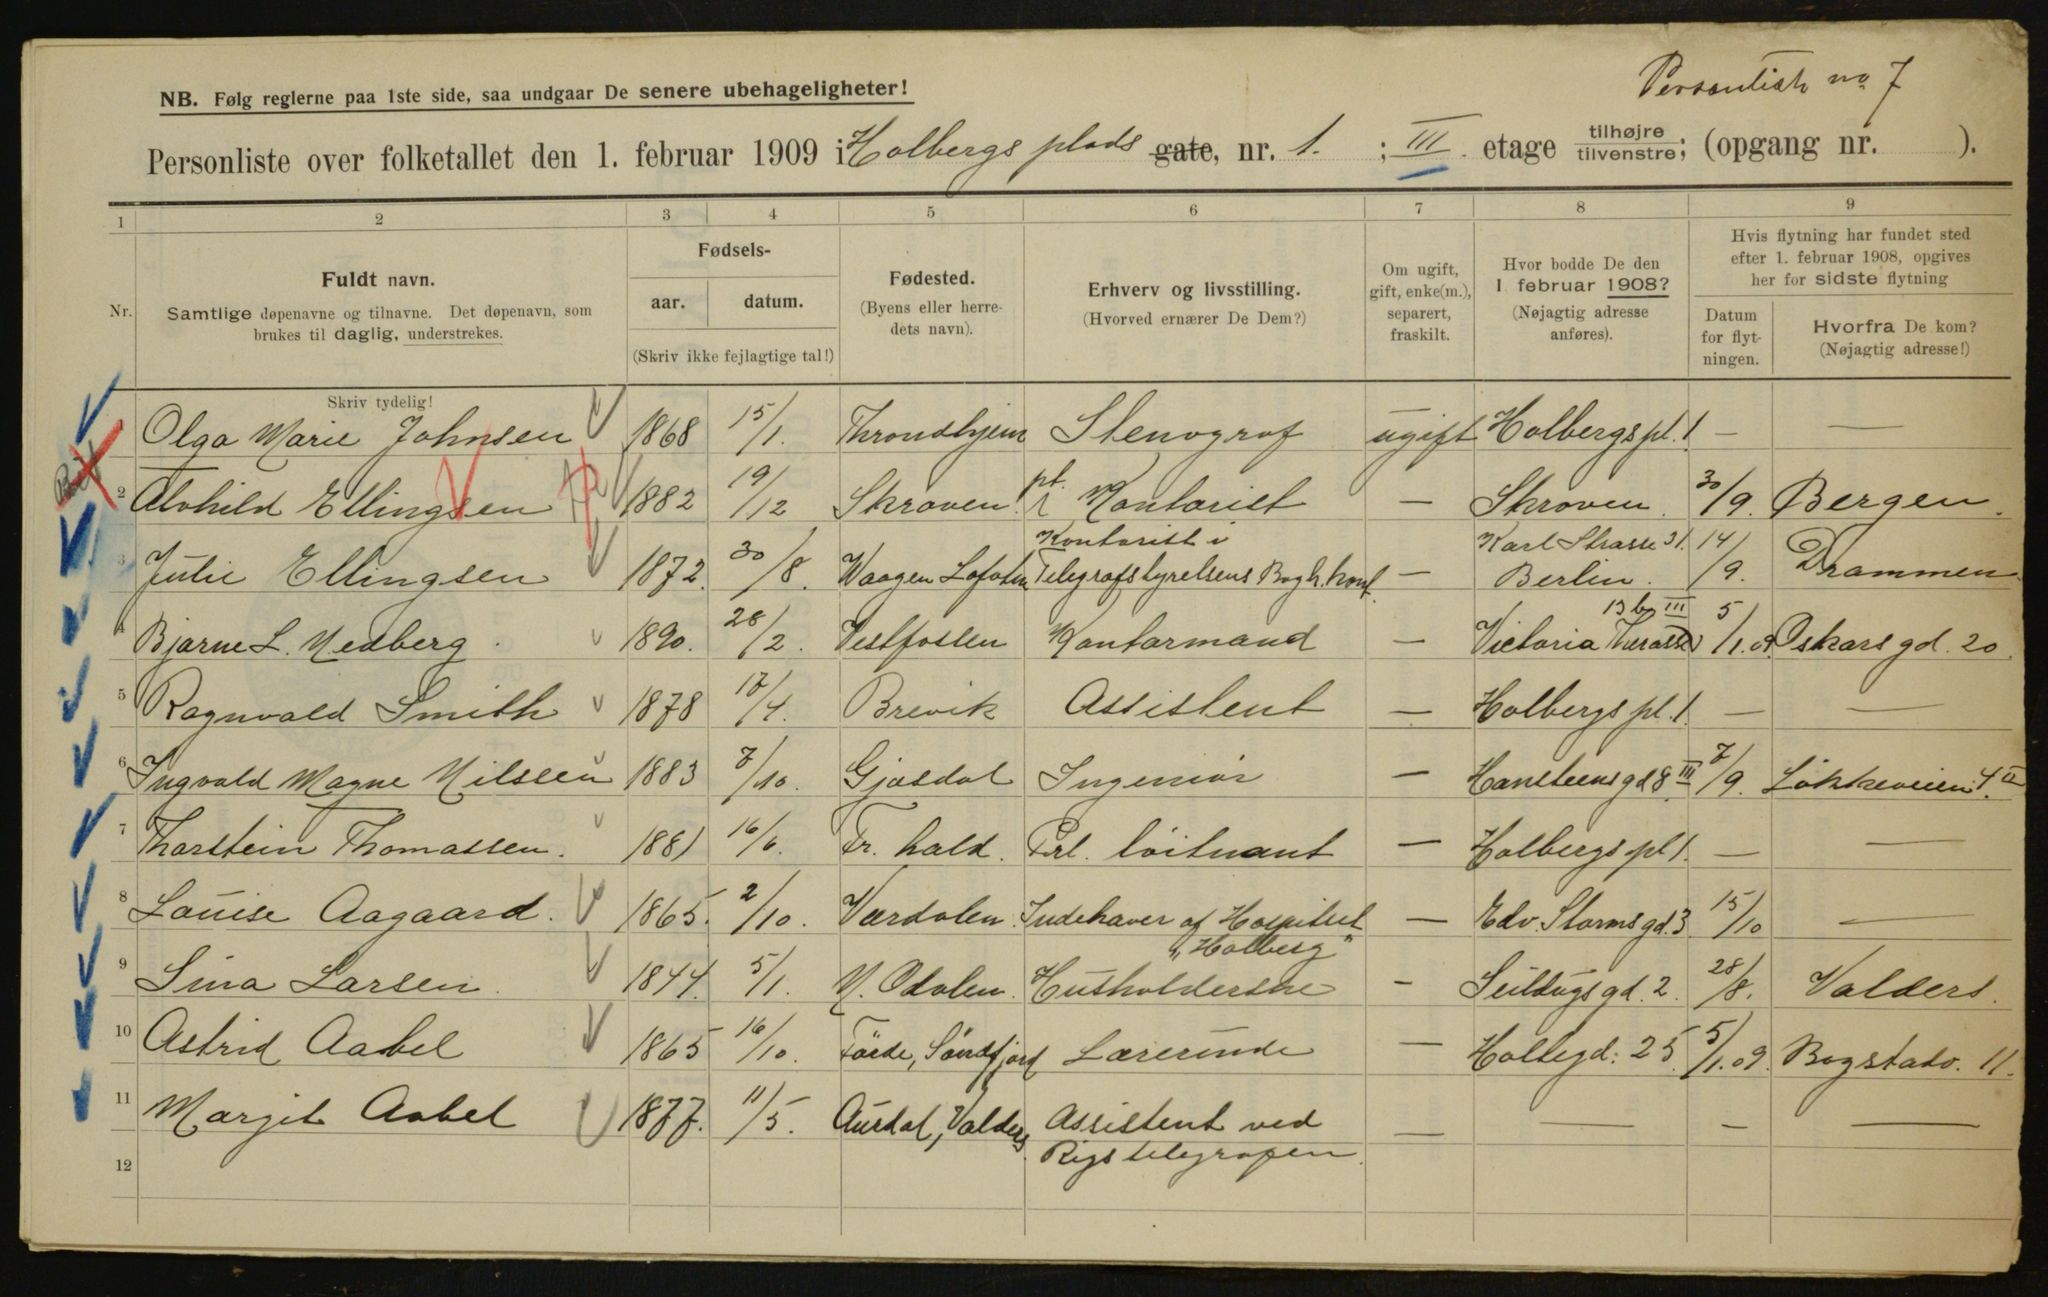 Personliste no 7
NB. Følg reglerne paa 1ste side, saa undgaar De senere ubehageligheter!
Personliste over folketallet den 1. februar 1909 i Holbergs plads gate, nr. 1. ; III. etage tilhøjre tilvenstre; (opgang nr. ).
1 2 3 4 5 6 7 8 9
Nr.
Fuldt navn.
Samtlige døpenavne og tilnavne. Det døpenavn, som
brukes til daglig, understrekes.
Fødsels-
aar. datum.
(Skriv ikke fejlagtige tal!)
Fødested.
(Byens eller herre-
dets navn).
Erhverv og livsstilling.
(Hvorved ernærer De Dem?)
Om ugift,
gift, enke(m.),
separert,
fraskilt.
Hvor bodde De den
1 februar 1908?
(Nøjagtig adresse
anføres).
Hvis flytning har fundet sted
efter 1. februar 1908, opgives
her for sidste flytning
Datum
for flyt-
ningen.
Hvorfra De kom?
(Nøjagtig adresse!)
Skriv tydelig!
Olga Marie Johnsen 1868 15/1. Throndhjem Stenograf ugift Holbergs pl. 1 — —
2 Alvhild Ellingsen 1882 19/12 Skroven. pt. Kontorist — Skroven. 30/9. Bergen.
3 Julie Ellingsen 1872. 30/8. Waagen Lofoten Kontorist i Telegrafstyrelsens Bogh. kont. — Karl Strasse 31. Berlin. 14/9. Drammen
4 Bjarne L. Nedberg. 1890. 28/2. Vestfossen Kontormand — Victoria Therasse 13 b III 5/1.09. Oskars gd. 20.
5 Ragnvald Smith 1878 17/4. Brevik Assistent — Holbergs pl. 1. — —
6 Ingvald Magne Nilsen 1883 7/10. Gjesdal Ingeniør — Hansteensgd 8 III 7/9. Løkkeveien 4. II
7 Thorstein Thomassen. 1881 16/6. Fr. hald. Prl. løitnant — Holbergs pl 1. — —
8 Louise Aagaard. 1865. 2/10. Værdalen. Indehaver af Hospitset „Holberg" — Edv. Storms gd. 3 15/10 —
9 Sina Larsen. 1844. 5/1. N. Odalen. Husholderske - Seildugs gd. 2. 28/8. Valders.
10 Astrid Aabel 1865 16/10. Førde, Søndfjord Lærerinde — Holtegd. 25. 5/1.09. Bogstadv. 11.
11 Margit Aabel 1877. 11/5. Aurdal, Valders. Assistent ved Rigstelegrafen. — — — —
12